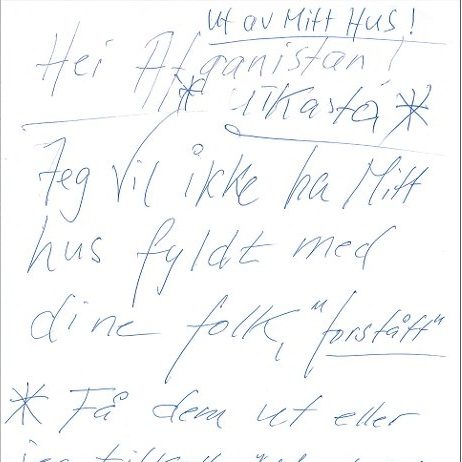 ut av Mitt Hus!
Hei Afganistan!
Jeg vil ikke ha Mitt
hus fyldt med
dine folk, "forstått"
* Få dem ut eller
jeg